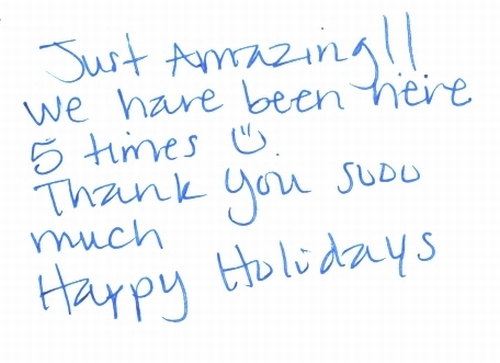 Just Amazing!!
We have been here
5 times ☺
Thank you sooo
much
Happy Holidays